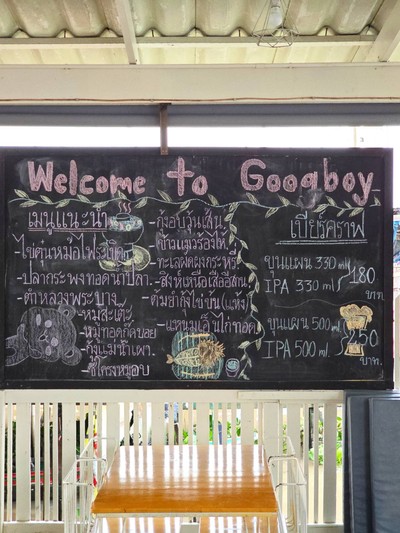 Welcome to Googboy
เมนูแนะนำ
-ไข่ต้นหม้อไฟระเบิด
-ปลากระพงทอดน้ำปลา.
-ตำหลวงพระบาง
-หมูสะเต๊ะ
-หมูทอดกัดบ่อย
-กุ้งแม่น้ำเผา.
-ซี่โครงหมูอบ
-กุ้งอบวุ้นเส้น.
-เสือร้องไห้.
-ทะเลผัดผงกะหรี่
-ต้มยำกุ้งไข่ข้น (แห้ง)
-แหนมเอ็นไก่ทอด
เบียร์คราฟ
ขุนแผน 330 ml
IPA 330 ml
180
บาท.
ขุนแผน 500 ml
IPA 500 ml.
250
บาท.